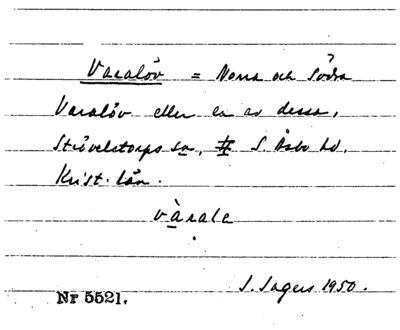 Varalöv = Norra och Södra
Varalöv eller en av dessa,
Strövelstorps sn, S. Åsbo hd,
Krist. län.
vàrale
J. Sagers 1950.
Nr 5521.